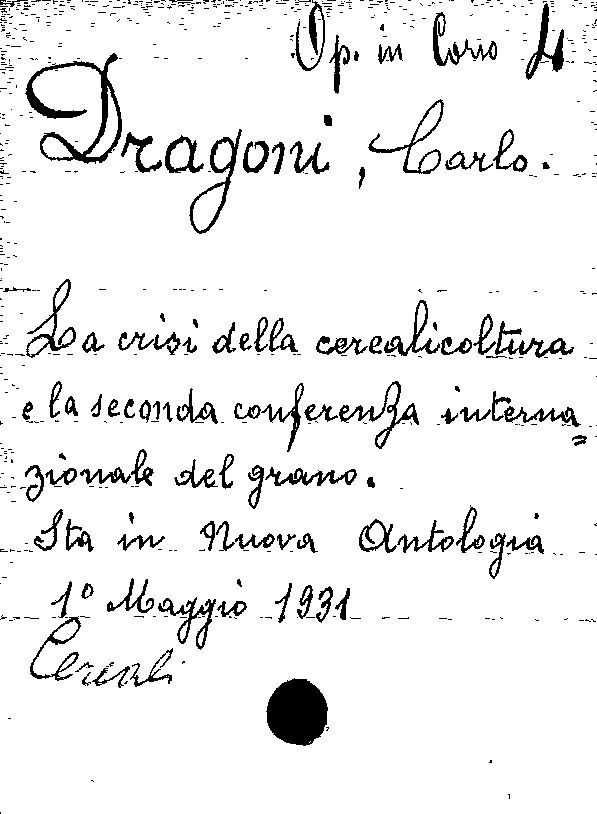 Op. in Corso 4
Dragoni, Carlo.
La crisi della cerealicoltura
e la seconda conferenza interna=
zionale del grano.
Sta in Nuova Antologia
1º Maggio 1931
Cereali